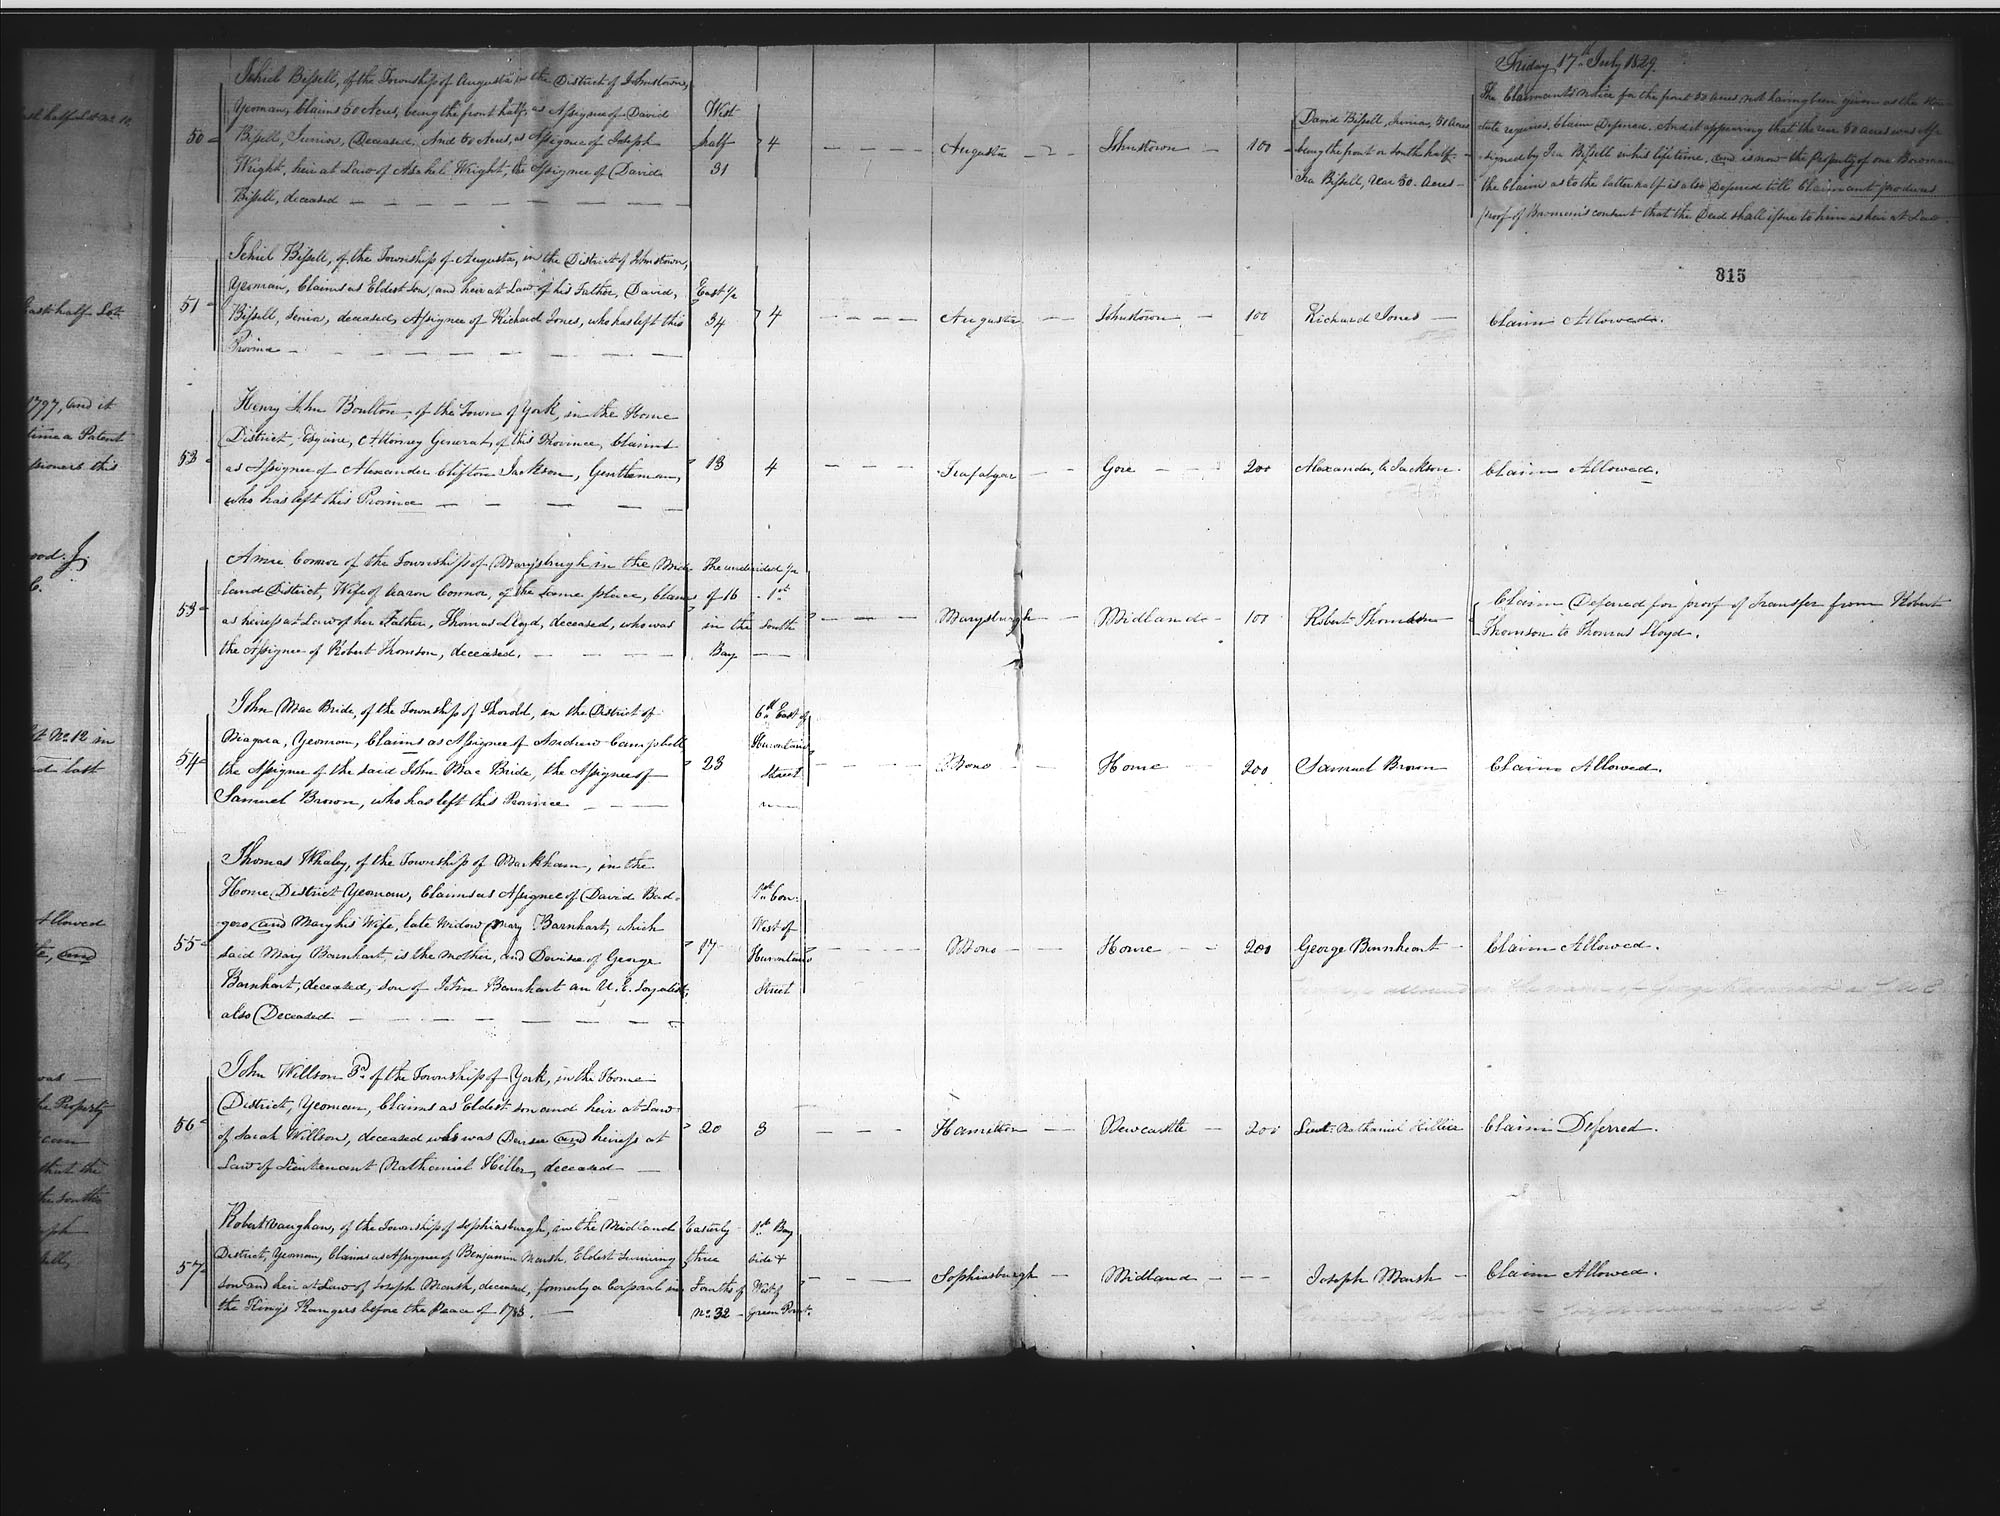 Friday 17th July 1829.
315
50
Jehiel Bissell, of the Township of Augusta in the District of Johnstown,
Yeoman, Claims 50 Acres, being the front half, as Assignee of David
Bissell, Junior, Deceased. And 50 Acres, as Assignee of Joseph
Wright, heir at Law of Asahel Wright, the Assignee of David
Bissell, deceased
West
half
31
4
Augusta
Johnstown
100
David Bissell, Junior, 50 Acres
being the front or South half
Ira Bissell, rear 50 Acres
The Claimant's notice for the front 50 Acres not having been given as the Sta-
tute requires, Claim Deferred. And it appearing that the rear 50 Acres was As-
signed by Ira Bissell in his lifetime, and is now the Property of one Bowman
the Claim as to the latter half is also Deferred till Claimant produces
proof of Bowman's consent that the Deed shall issue to him as heir at Law.
51
Jehiel Bissell, of the Township of Augusta, in the District of Johnstown,
Yeoman, Claims as Eldest Son, and heir at Law of his Father, David,
Bissell, Senior, deceased, Assignee of Richard Jones, who has left this
Province
East 1/2
34
4
Augusta
Johnstown
100
Richard Jones
Claim Allowed.
52
Henry John Boulton, of the Town of York, in the Home
District, Esquire, Attorney General, of this Province, Claims
as Assignee of Alexander Clifton Jackson, Gentleman,
who has left this Province
13
4
Trafalgar
Gore
200
Alexander C. Jackson.
Claim Allowed.
53
Connor of the Township of Marysburgh in the Mid-
land District, Wife of Aaron Connor, of the same place, Claims
as heiress at Law of her Father, Thomas Lloyd, deceased, who was
the Assignee of Robert Thomson, deceased.
The undivided 1/2
of 16 1st
in the South
Bay
Marysburgh
Midland
100
Robert Thomson
Claim Deferred for proof of transfer from Robert
Thomson to Thomas Lloyd.
54
John Mac Bride, of the Township of Thorold, in the District of
Niagara, Yeoman, Claims as Assignee of Andrew Campbell
the Assignee of the said John Mac Bride, the Assignee of
Samuel Brown, who has left this Province
23
6th East of
Hurontario
Street
Mono
Home
200
Samuel Brown
Claim Allowed.
55
Thomas Whaley, of the Township of Markham, in the
Home District Yeoman, Claims as Assignee of David Bad-
gero and Mary his Wife, late Widow Mary Barnhart, which
said Mary Barnhart, is the Mother, and Devisee of George
Barnhart, deceased, son of John Barnhart an U. E. Loyalist,
also Deceased
17
1st Con.
West of
Hurontario
Street
Mono
Home
200
George Barnheart
Claim Allowed.
56
John Willson 3d of the Township of York, in the Home
District, Yeoman, Claims as Eldest son and heir at Law
of Sarah Willson, deceased who was Devisee and heiress at
Law of Lieutenant Nathaniel Hiller, deceased
20
3
Hamilton
Newcastle
200
Lieut. Nathaniel Hillier
Claim Deferred.
57
Robert Vaughan, of the Township of Sophiasburgh, in the Midland
District, Yeoman, Claims as Assignee of Benjamin Marsh, Eldest Surviving
son and heir at Law of Joseph Marsh, deceased, formerly a Corporal in
the King's Rangers before the Peace of 1783.
Easterly
three
Fourths of
No. 32
1st Bay
side &
West of
Green Point
Sophiasburgh
Midland
Joseph Marsh
Claim Allowed.
East half Lot
1797, and it
time a Patent
this
No. 12 in
last
Allowed
and
was
the Property
that the